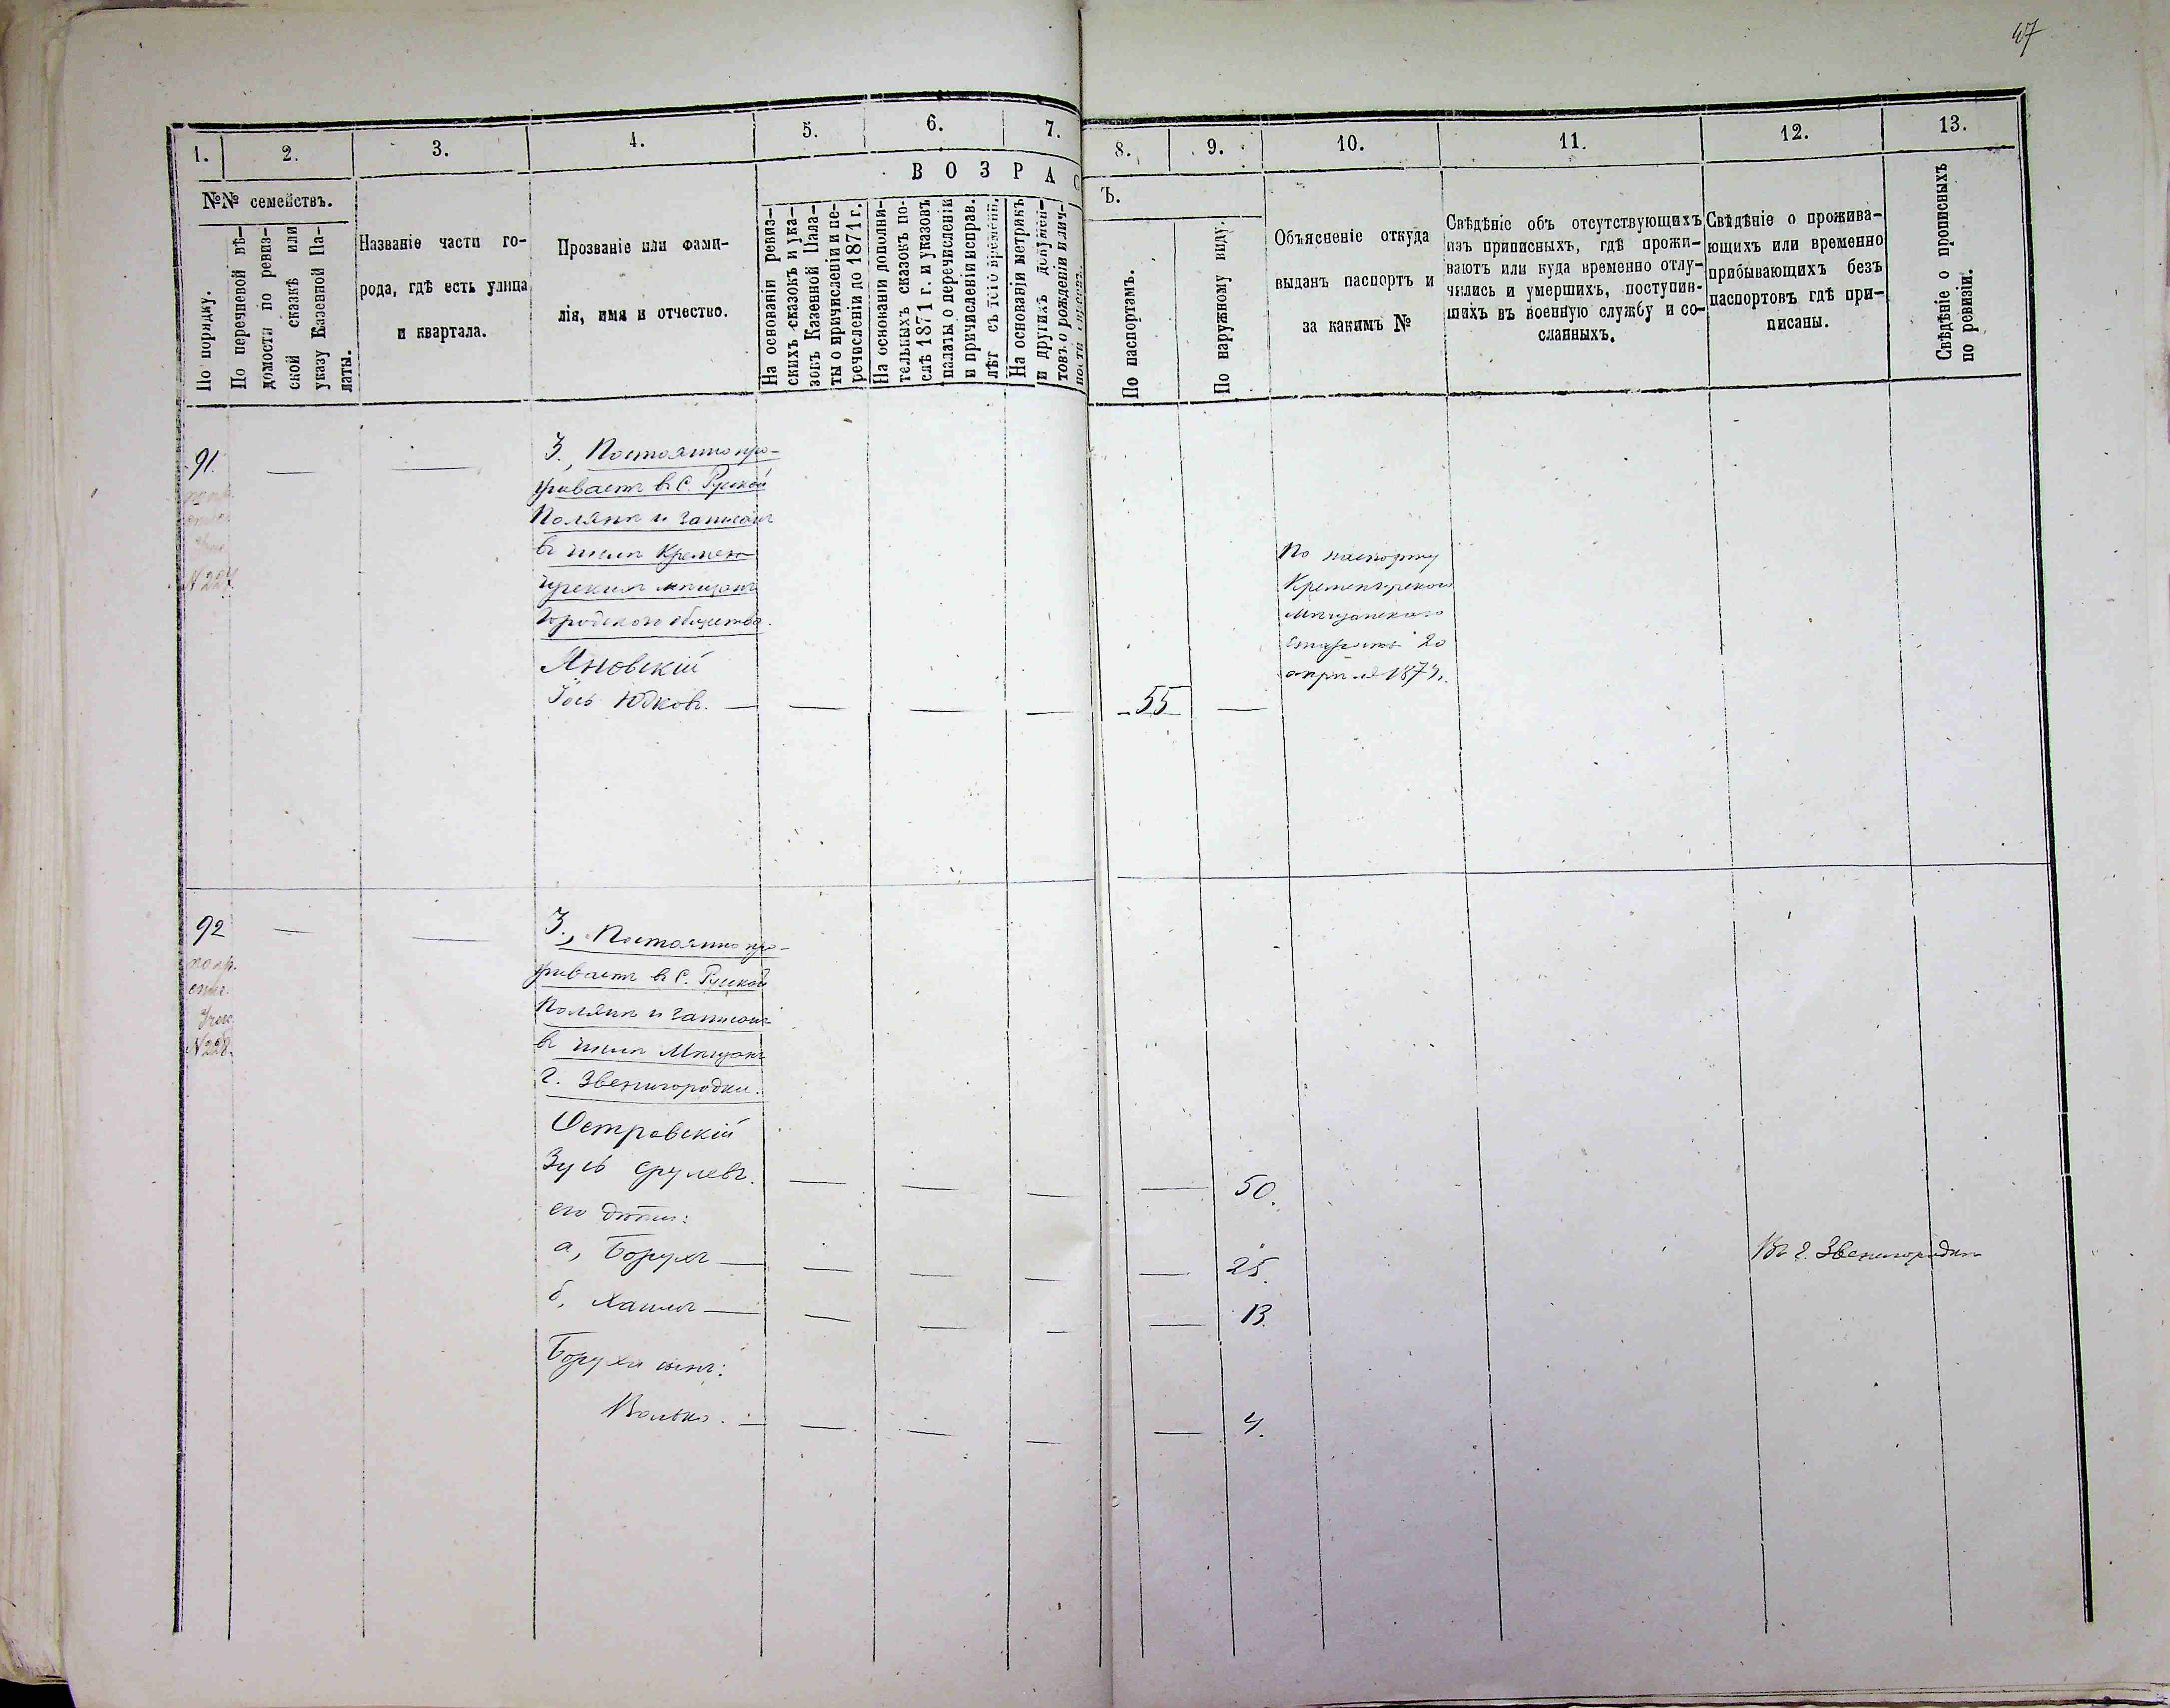 47
1.
2.
3.
4.
5.
6.
7.
8.
9.
10.
11.
12.
13.
№№ семействъ.
По порядку.
По перечневой вѣ-
домости по ревиз-
ской сказкѣ или
указу Казенной Па-
латы.
Названіе части го-
рода, гдѣ есть улица
и квартала.
Прозваніе или фами-
лія, имя и отчество.
ВОЗРАС
Ъ.
На основаніи ревиз-
скихъ сказокъ и ука-
зокъ Казенной Пала-
ты о причисленіи и пе-
речисленіи до 1871 г.
На основаніи дополни-
тельныхъ сказокъ по-
слѣ 1871 г. и указовъ
палаты о перечисленіи
и причисленіи исправ.
лѣт съ того времени.
На основаніи метрикъ
и другихъ докумен-
товъ о рожденіи и лич-
По паспортамъ.
По наружному виду.
Объясненіе откуда
выданъ паспортъ и
за какимъ №
Свѣдѣніе объ отсутствующихъ
изъ приписныхъ, гдѣ прожи-
ваютъ или куда временно отлу-
чились и умершихъ, поступив-
шихъ въ военную службу и со-
сланныхъ.
Свѣдѣніе о прожива-
ющихъ или временно
прибывающихъ безъ
паспортовъ гдѣ при-
писаны.
Свѣдѣніе о прописныхъ
по ревизіи.
91.
№ 227.
3., Постоянно про-
живаетъ въ С. Руской
Полянѣ и записанъ
въ числѣ Кремен-
чугскихъ мѣщанъ
Городского общества.
Яновскій
Іось Юдковъ.
55
По паспорту
Кременчугского
Мѣщанскаго
Старосты 20
апрѣля 1874.
92
№ 228.
3., Постоянно про-
живаетъ въ С. Руской
Полянѣ и записанъ
въ числѣ Мѣщанъ
г. Звенигородки.
Островскій
Зусь Срулевъ.
50.
его дѣти:
а, Борухъ
25.
Въ г. Звенигородкѣ
б, Хаимъ
13.
Боруха сынъ:
Волько.
4.